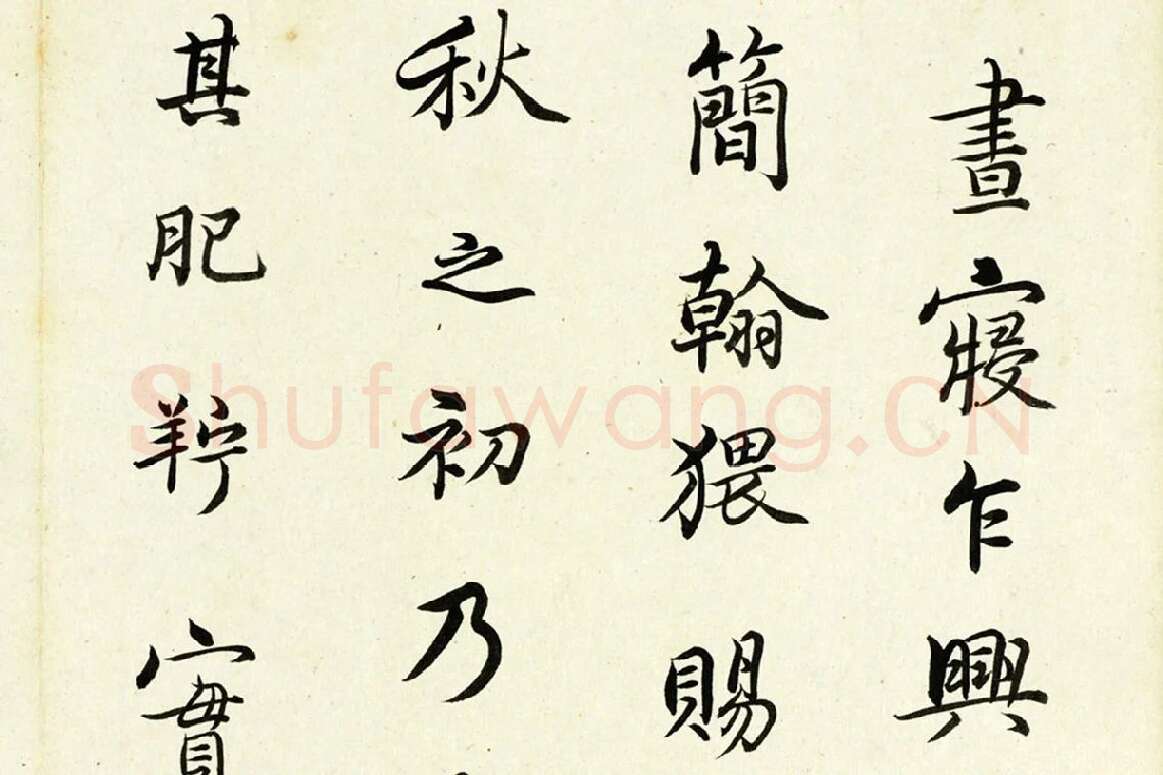 晝寢乍興
簡翰猥賜
秋之初乃
其肥羜實
Shufawang.CN